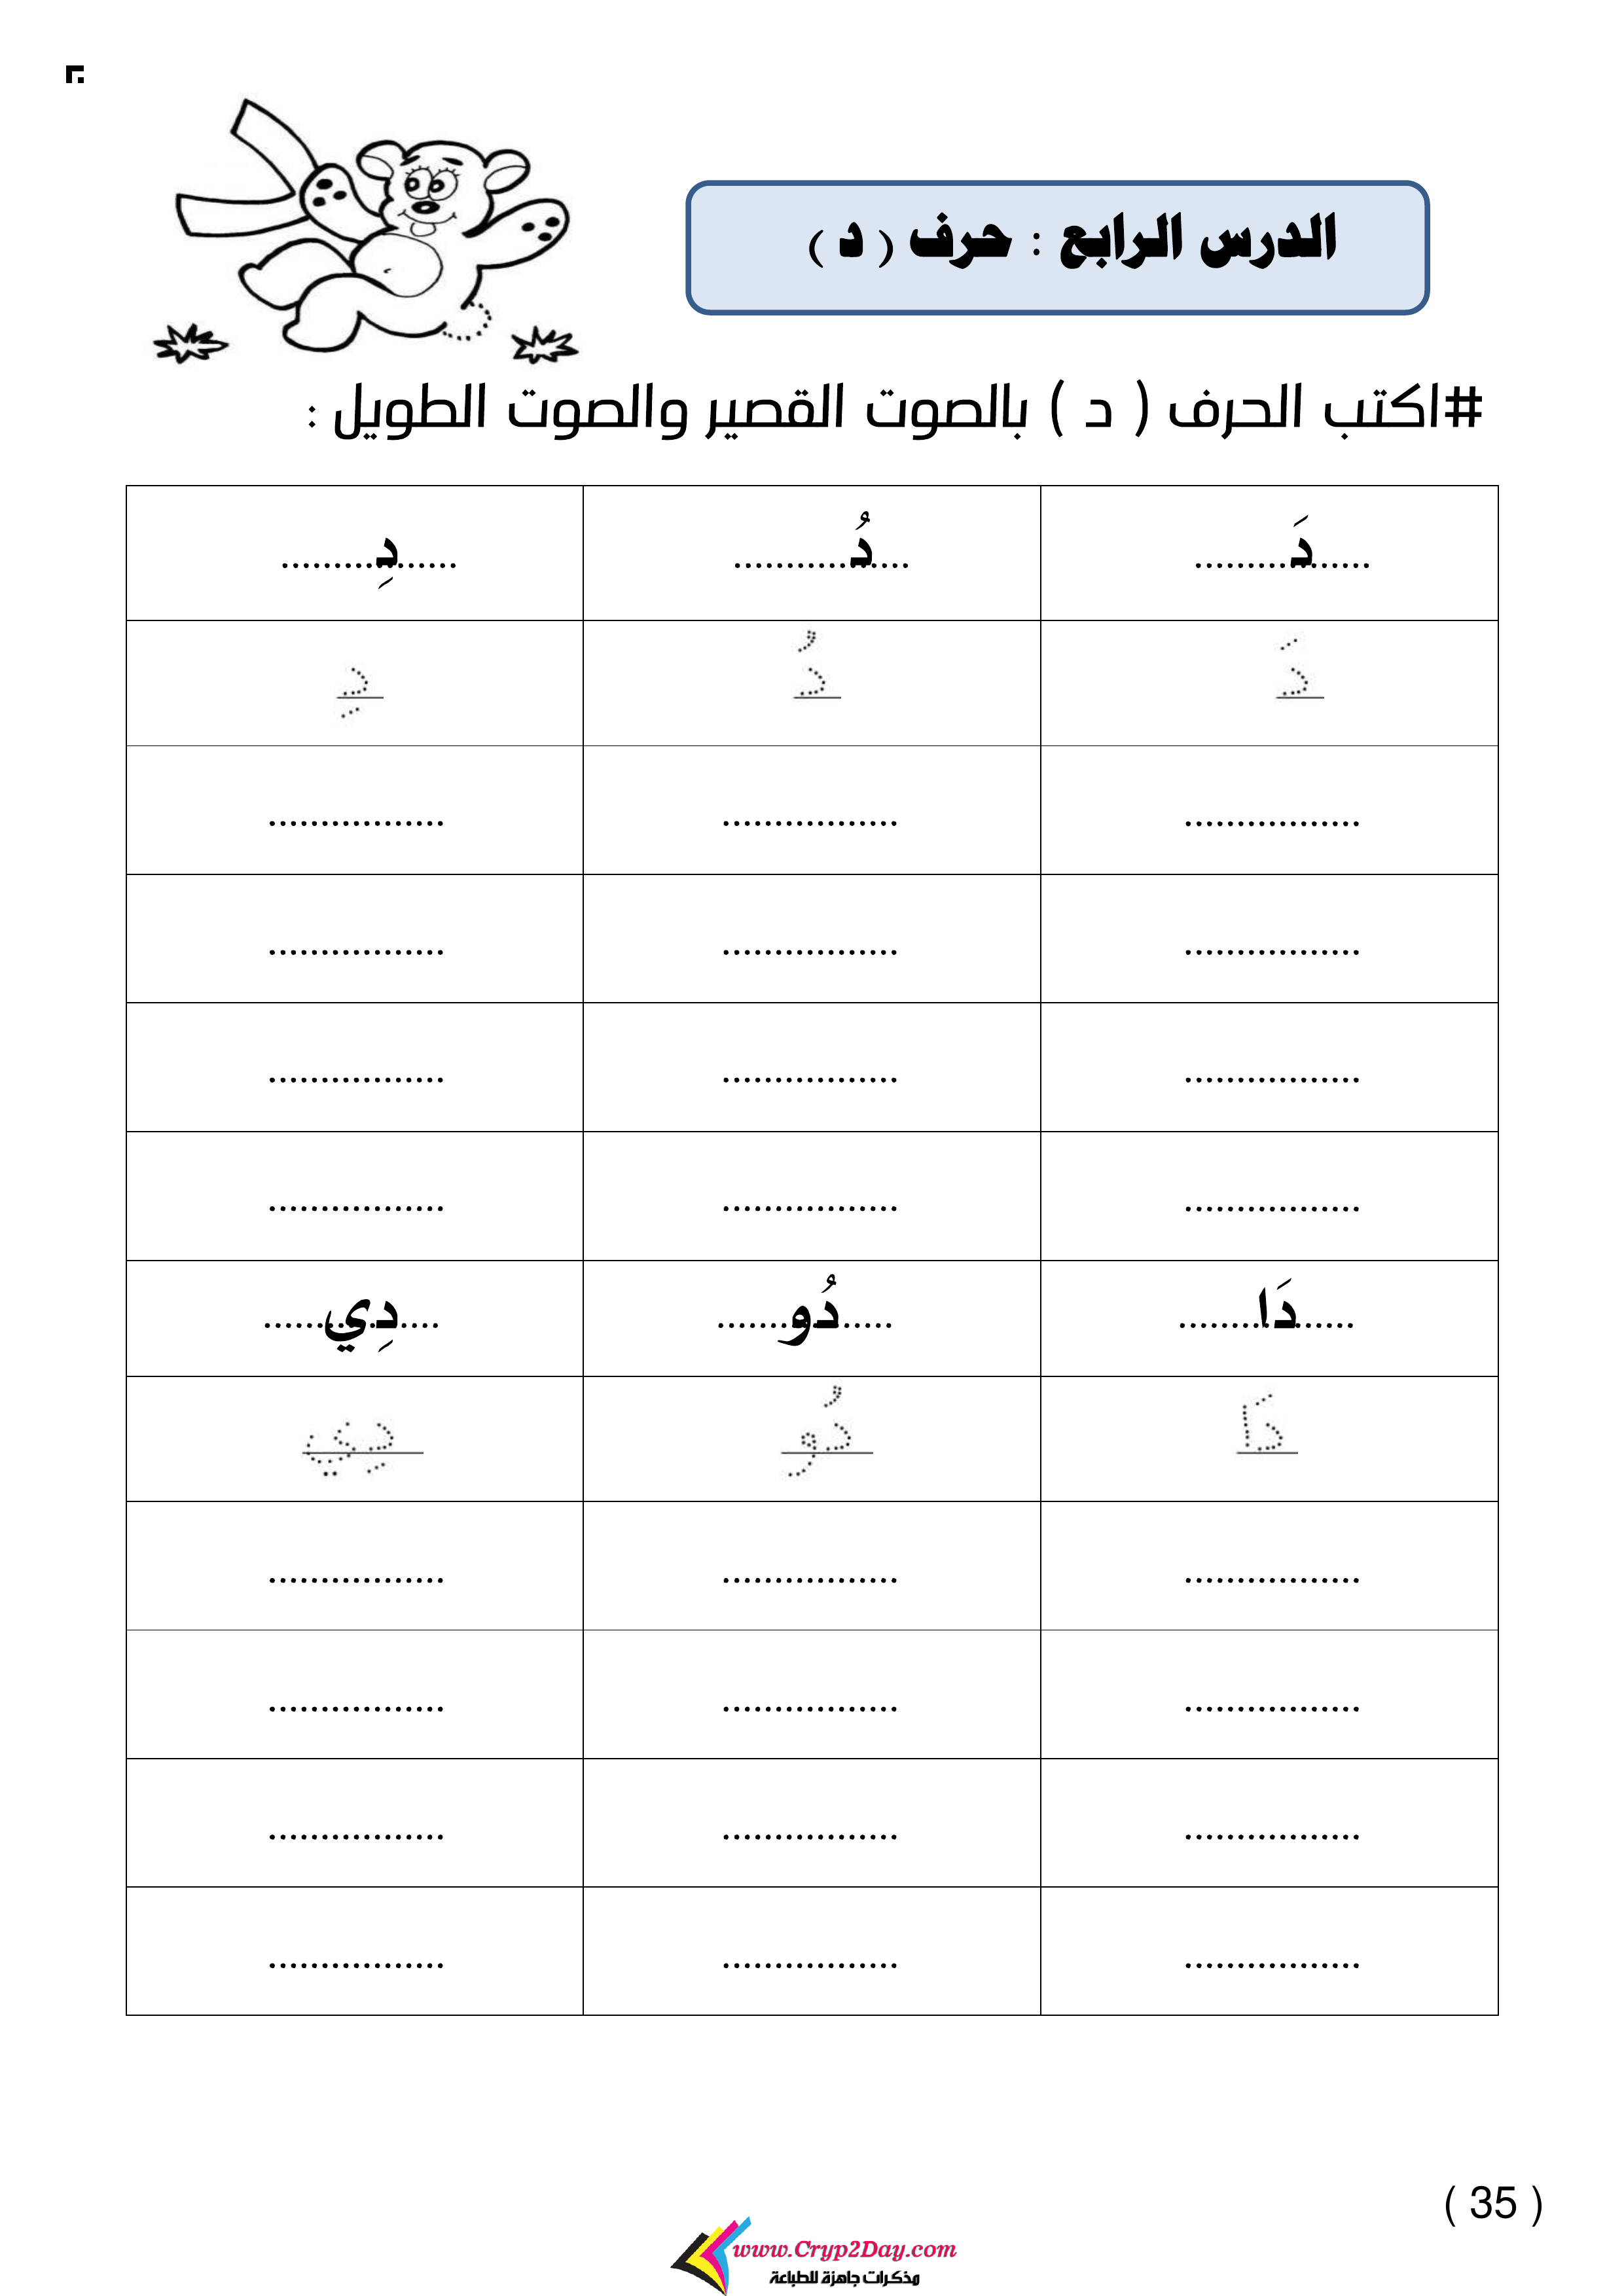 الدرس الرابع : حرف ( د )
#اكتب الحرف ( د ) بالصوت القصير والصوت الطويل :
دَ................. دُ................. دِ.................
دَ دُ دِ
................. ................. .................
................. ................. .................
................. ................. .................
................. ................. .................
دَا................. دُو................. دِي.................
دَا دُو دِي
................. ................. .................
................. ................. .................
................. ................. .................
................. ................. .................
( 35 )
www.Cryp2Day.com
مذكرات جاهزة للطباعة